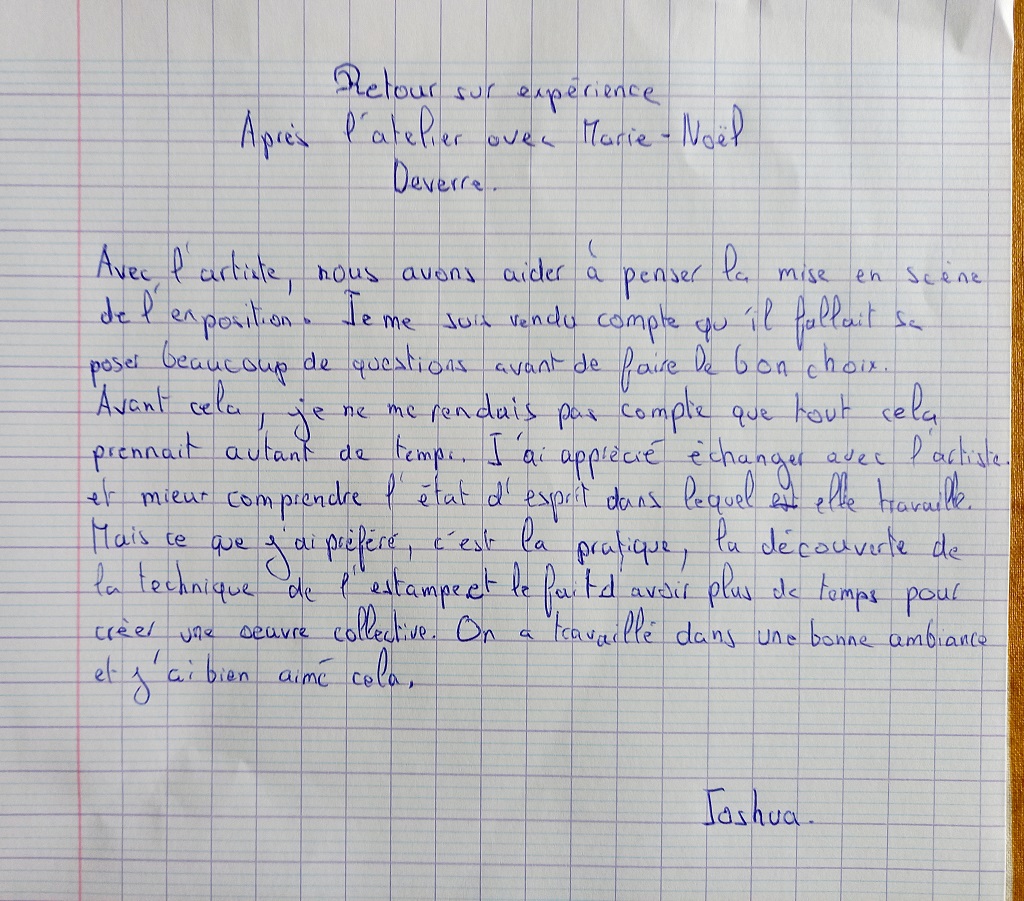 Retour sur expérience
Après l'atelier avec Marie-Noël
Deverre.
Avec l'artiste, nous avons aider à penser la mise en scène
de l'exposition. Je me suis rendu compte qu'il fallait se
poser beaucoup de questions avant de faire le bon choix.
Avant cela, je ne me rendais pas compte que tout cela
prennait autant de temps. J'ai apprécié échanger avec l'artiste.
et mieux comprendre l'état d'esprit dans lequel elle travaille.
Mais ce que j'ai préféré, c'est la pratique, la découverte de
la technique de l'estampe et le fait d'avoir plus de temps pour
créer une oeuvre collective. On a travaillé dans une bonne ambiance
et j'ai bien aimé cela.
Joshua.